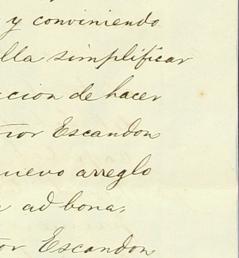 y conviniendo
lla simplificar
ccion de hacer
ñor Escandon
uevo arreglo
ad bona.
or Escandon